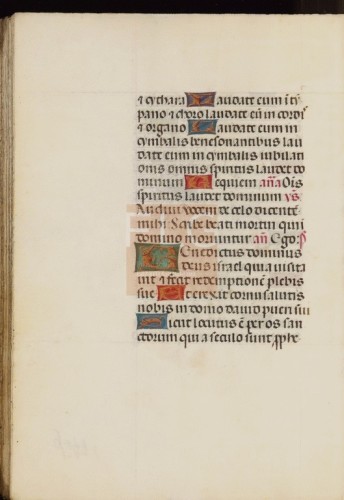 ⁊ cythara Laudate eum i ty
pano ⁊ choro laudate eū in cordis
⁊ organo Laudate eum in
cymbalis benesonantibus lau
date eum in cymbalis iubilati
onis omnis spiritus laudet do
minum Requiem an̄a Ois
spiritus laudet dominum vs
Audiui vocem de celo dicente
mihi Sque beati mortui qui
domino moriuntur an̄ Ego ps
Benedictus dominus
deus israel quia visita
uit ⁊ fecit redemptionē plebis
sue Et erexit cornu salutis
nobis in domo dauid pueri sui
Sicut locutus ē per os san
ctorum qui a seculo sunt prophe